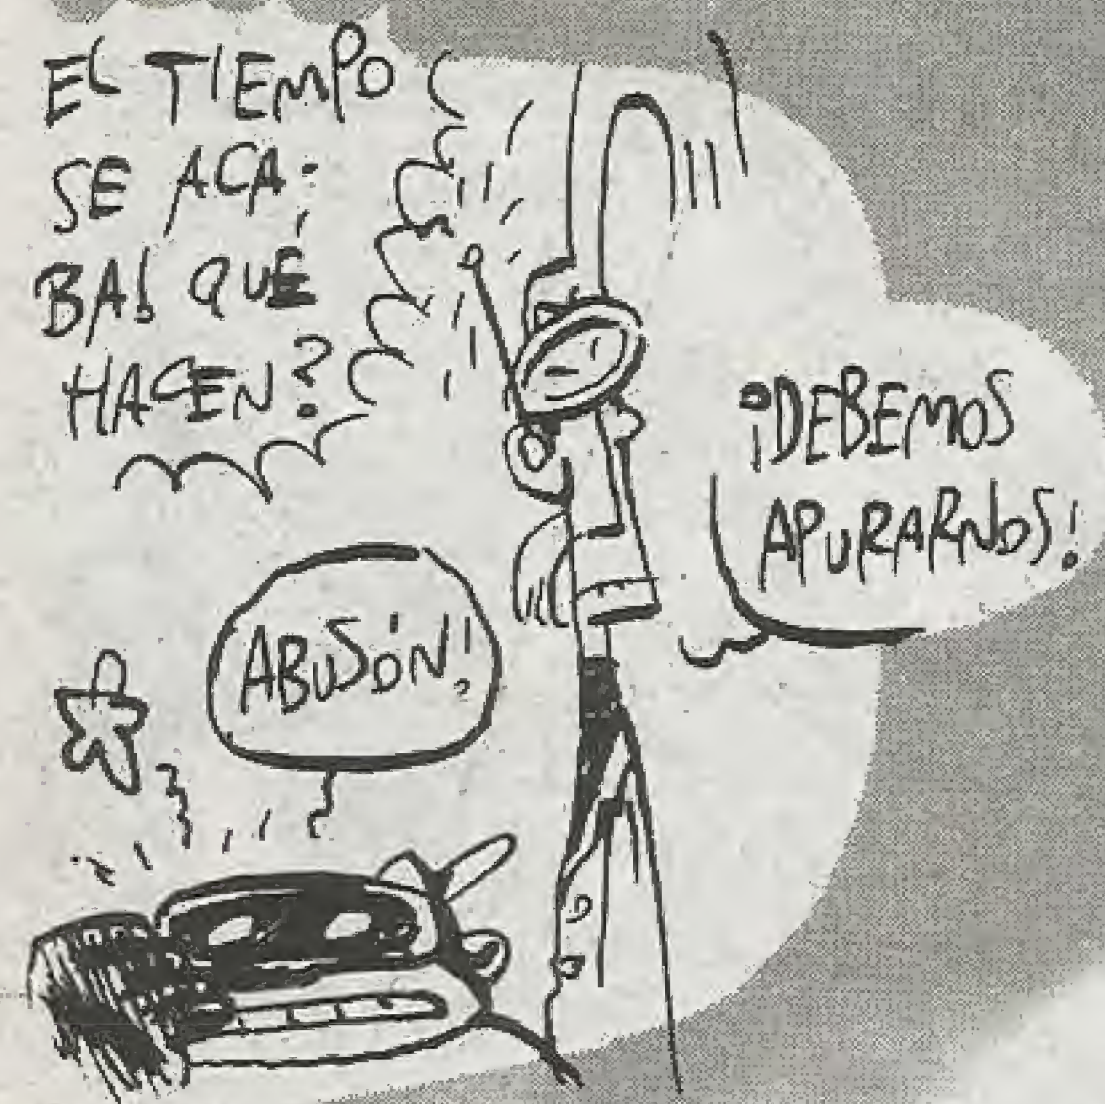 EL TIEMPO
SE ACA-
BA! QUÉ
HACEN?
¡DEBEMOS
APURARNOS!
ABUSÓN!